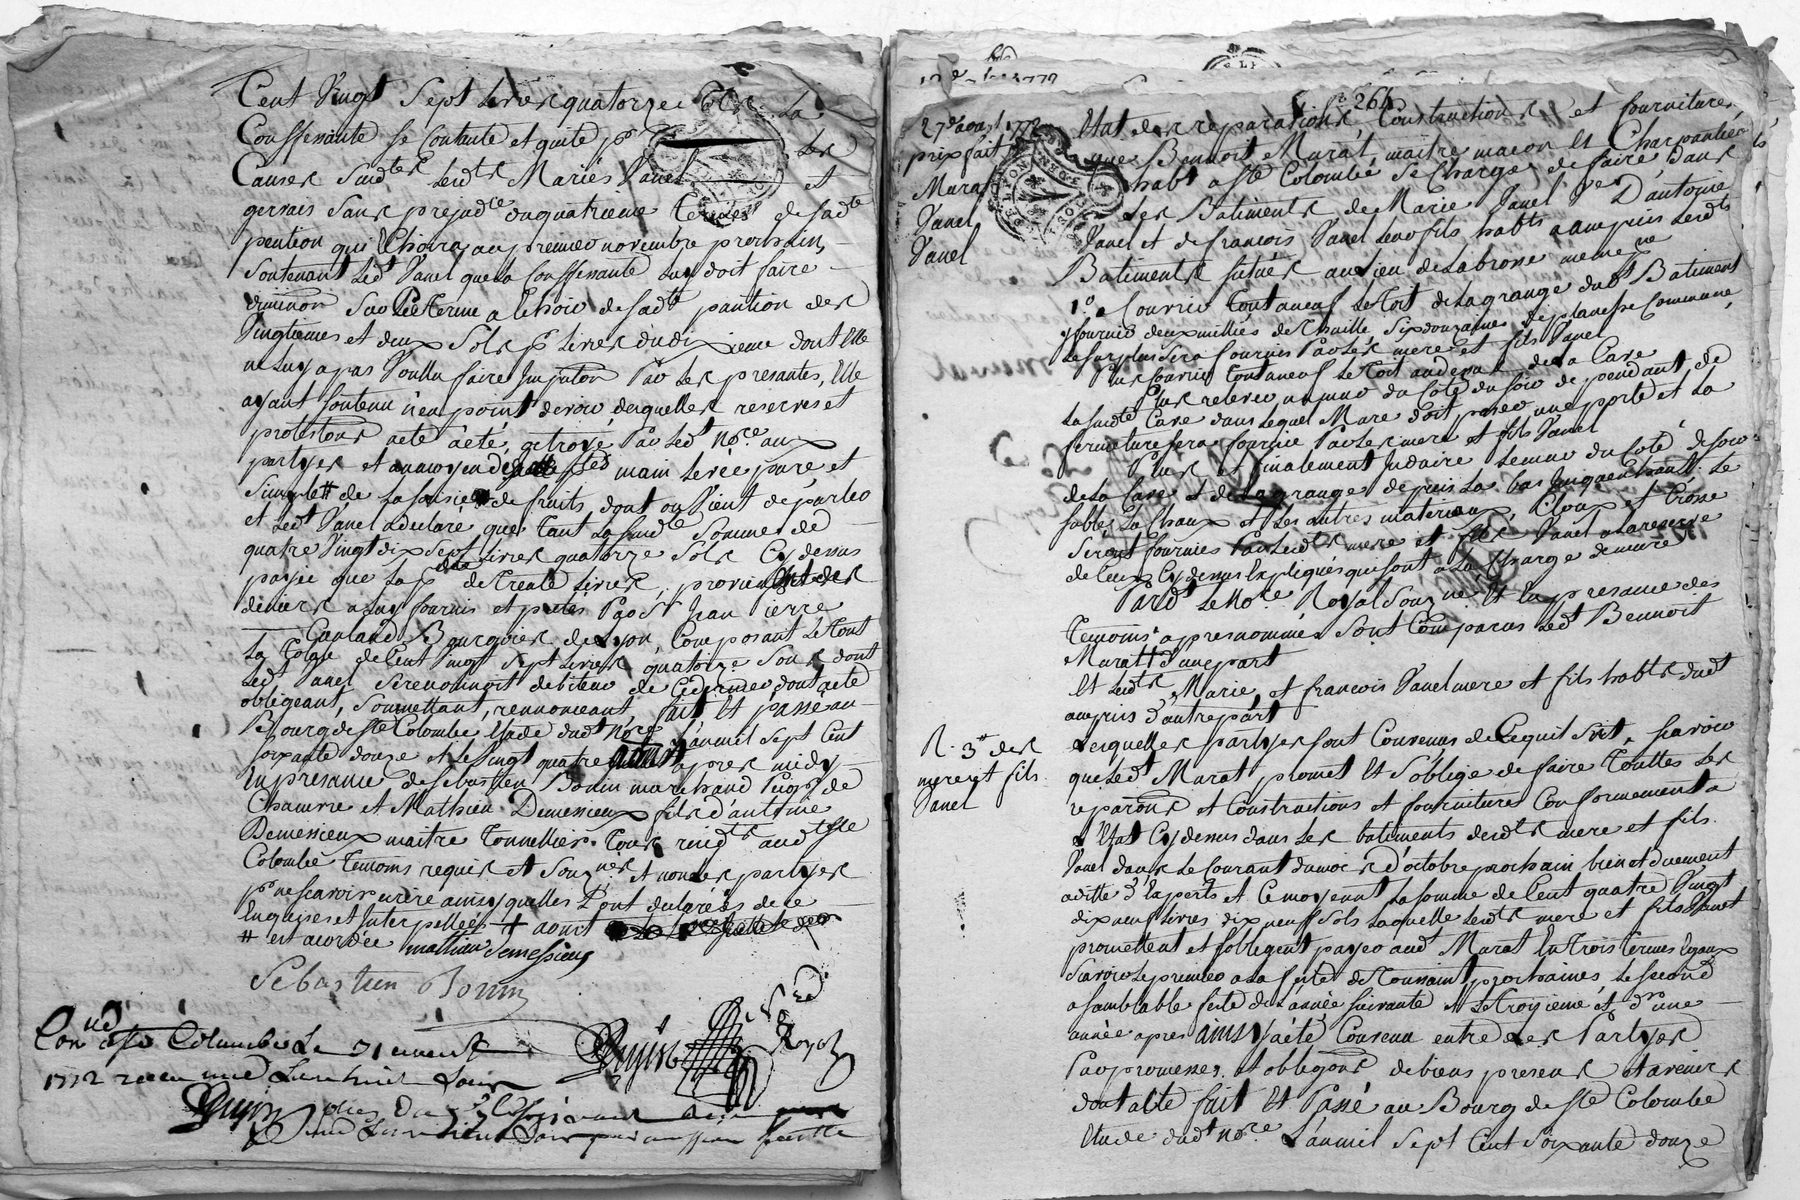 Cent Vingt Sept Livres quatorze sols La
Confessante se Contante et quite pr Les
Causes Susdtes Lesdts Mariés Vanel et
gervais Sans prejudce duquatrieme Terme de sadte
pention qui Echoira au premier novembre prochain
Soutenant Ledt Vanel que la Confessante Luy doit faire
diminon Sur Le Terme a Echoir de sadte pantion des
Vingtiemes et deux Sols pr Livres du dixieme dont Elle
ne luy a pas Voullu faire Imputon Par Les presantes, Elle
ayant Soutenu n'en point devoir desquelles reserves et
protestons acte a été octroyé Par Ledt Nore aux
partyes et aumoyen des ptes main Levée pure et
Simple # de La saisie de fruits dont on Vient de parler
et Ledt Vanel a declaré que Tant La susdte Somme de
quatre Vingt dix Sept Livres quatorze Sols Cy dessus
payee que La pte de Trente Livres, provient des
deniers a Luy fournis et pretés Par Sr Jean Pierre
Bourgois de Lyon, Composant Le Tout
La Totale de Cent Vingt Sept Livres quatorze Sous dont
Ledt Vanel Se reconnoit debiteur de Cedernier dont acte
obligeant, Soumettant, rennonceant, fait Et passé au
Bourg de Ste Colombe Etude dudt Nore L'an mil Sept Cent
soixante douze et Le Vingt quatre aoust apres midy
En presance de Sebastien Bonin marchand
Chauvre et Mathieu Demessieux fils d'antoine
Demessieux maitre Tonnellier Tous residts audt Ste
Colombe Temoins requis et Souznés Et non Les partyes
pr ne scavoir ecrire ainsy quelles L'ont declaréés de ce
Enquises et Interpellées # aoust
# est acordée mathieu demessieux
Sebastien Bonin
Nore Royal
Con a Ste Colombe Le 31
1772 recu
27e aoust 1772
prix fait
Murat
Vanel
Vanel
264
Etat des reparations, Construction et fournitures
que Bennoit Murat, maitre macon Et Charpantier
habt a Ste Colombe Se Charge de faire dans
Les Batiments de Marie Vanel Ve D'antoine
Vanel et de francois Vanel Leur fils habts a ampuis Lesdts
Batiments situés au Lieu de Labrosse
1o a Couvrir Tout a neuf Le Toit de La grange dudt Batiment
y fournir deux milliés de Thuille Six douzaines de planche Commune
Le surplus Sera fourni Par Les mere et fils Vanel
Plus Couvrir Tout a neuf Le Toit audevant de La Cave
Plus relever un mur du Coté du soir dependant de
La susdte Cave dans Lequel Mure doit poser une porte et La
fermeture sera fournie Par Les mere et fils Vanel
Plus et finalement Juduire Le mur du Coté de soir
de La Cave Et de La grange depuis La bas Jusquen haut. Le
Sable, La Chaux et Les autres materiaux, Cloux et Crosse
Seront fournies Par Lesdts mere et fils Vanel a La reserve
de Ceux Cydessus Expliqués qui sont a La Charge de mure
Pardt Le Nore Royal Souzné Et En presance des
Temoins apres nommés Sont Comparus Ledt Bennoit
Murat d'une part
Et Lesdts Marie et francois Vanel mere et fils habts dudt
ampuis d'autre part
R. 3e des
mere et fils
Vanel
Lesquelles partyes sont Convenus de Cequit Suit, Scavoir
que Ledt Murat promet Et s'oblige de faire Touttes Les
reparons et Constructions et fournitures Conformement a
L'Etat Cydessus dans Les batiments desdts mere et fils
Vanel dans Le Courant du mois d'octobre prochain, bien et duement
a ditte d'Experts et Ce moyennt La somme de Cent quatre Vingt
dix neuf Livres dix neuf Sols Laquelle Lesdts mere et fils Vanel
promettent et sobligent payer audt Murat En trois Termes Egaux
Scavoir Le premier a La feste de Toussaint prochaines Le second
a Samblable feste de L'année suivante et Le Troisieme et dr une
année apres ainsy a été Convenu entre Les Partyes
Par promesses, et obligons de biens presens et avenirs
dont acte fait Et Passé au Bourg de Ste Colombe
Etude dudt Nore. L'an mil Sept Cent Soixante douze